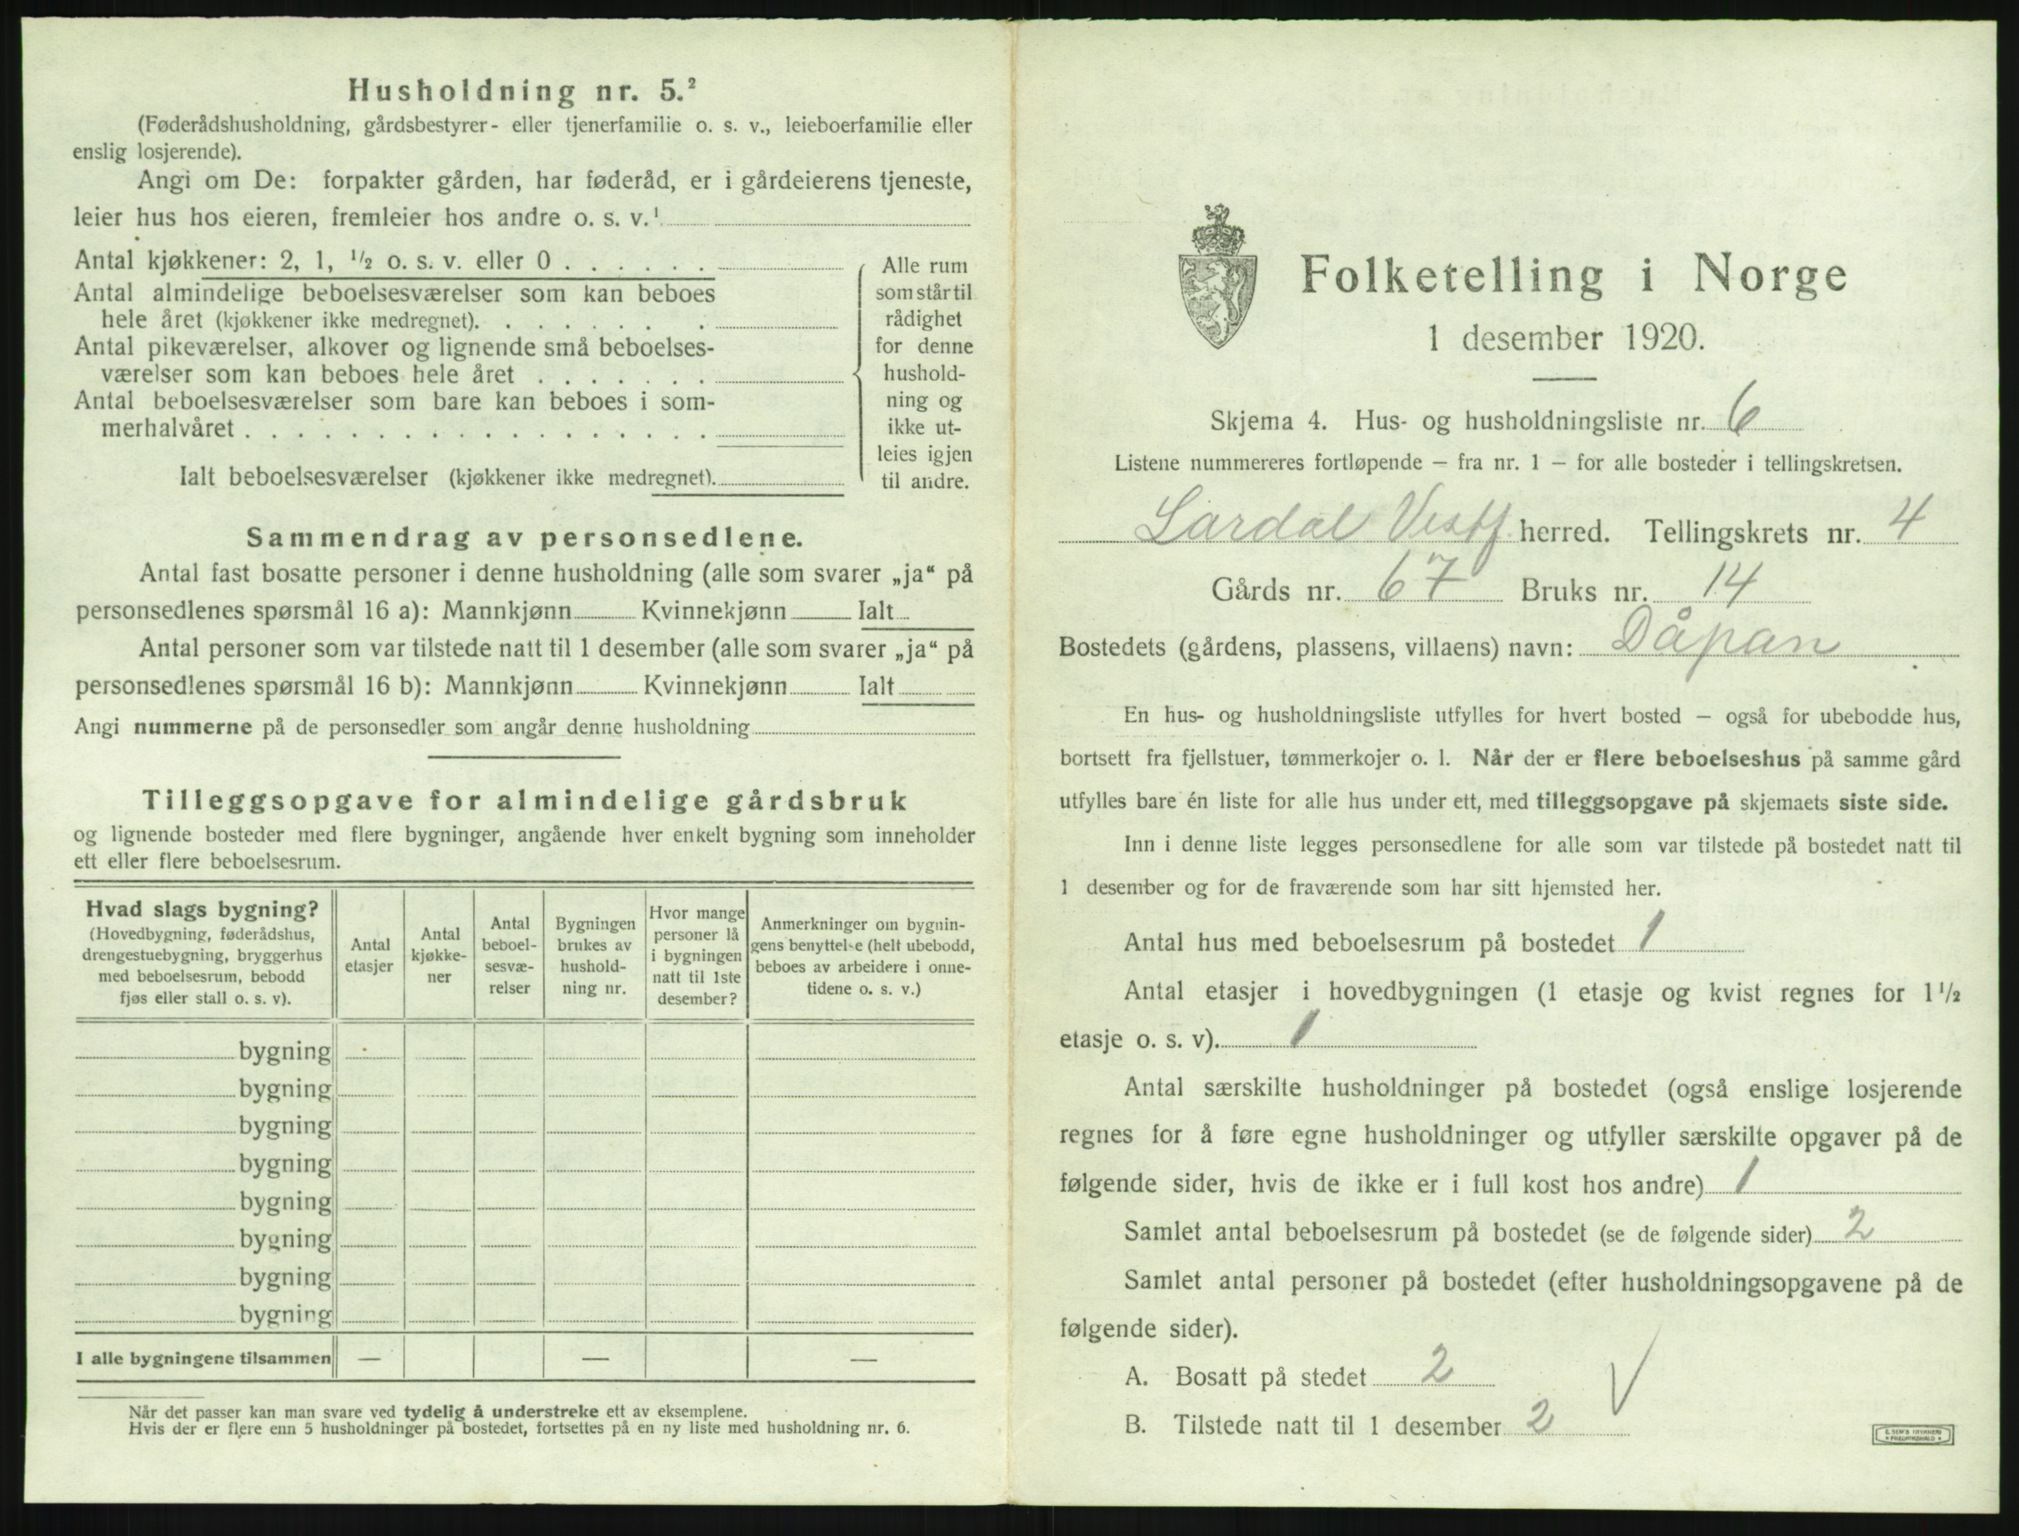 Husholdning nr. 5.²
(Føderådshusholdning, gårdsbestyrer- eller tjenerfamilie o. s. v., leieboerfamilie eller
enslig losjerende).
Angi om De: forpakter gården, har føderåd, er i gårdeierens tjeneste,
leier hus hos eieren, fremleier hos andre o. s. v.¹
Antal kjøkkener: 2, 1, ½ o. s. v. eller 0 . . . . . .
Antal almindelige beboelsesværelser som kan beboes
hele året (kjøkkener ikke medregnet). . . . . . . . .
Antal pikeværelser, alkover og lignende små beboelses-
værelser som kan beboes hele året . . . . . . .
Antal beboelsesværelser som bare kan beboes i som-
merhalvåret . . . . . . . . . . . . . . . . . .
Ialt beboelsesværelser (kjøkkener ikke medregnet).
Alle rum
som står til
rådighet
for denne
hushold-
ning og
ikke ut-
leies igjen
til andre.
Sammendrag av personsedlene.
Antal fast bosatte personer i denne husholdning (alle som svarer „ja“ på
personsedlenes spørsmål 16 a): Mannkjønn Kvinnekjønn Ialt
Antal personer som var tilstede natt til 1 desember (alle som svarer „ja“ på
personsedlenes spørsmål 16 b): Mannkjønn Kvinnekjønn Ialt
Angi nummerne på de personsedler som angår denne husholdning
Tilleggsopgave for almindelige gårdsbruk
og lignende bosteder med flere bygninger, angående hver enkelt bygning som inneholder
ett eller flere beboelsesrum.
Hvad slags bygning?
(Hovedbygning, føderådshus,
drengestuebygning, bryggerhus
med beboelsesrum, bebodd
fjøs eller stall o. s. v).
Antal
etasjer
Antal
kjøkke-
ner
Antal
beboel-
sesvæ-
relser
Bygningen
brukes av
hushold-
ning nr.
Hvor mange
personer lå
i bygningen
natt til 1ste
desember?
Anmerkninger om bygnin-
gens benyttelse (helt ubebodd,
beboes av arbeidere i onne-
tidene o. s. v.)
bygning
bygning
bygning
bygning
bygning
bygning
bygning
bygning
I alle bygningene tilsammen — — —
Når det passer kan man svare ved tydelig å understreke ett av eksemplene.
Hvis der er flere enn 5 husholdninger på bostedet, fortsettes på en ny liste med husholdning nr. 6.
Folketelling i Norge
1 desember 1920.
Skjema 4. Hus- og husholdningsliste nr. 6
Listene nummereres fortløpende — fra nr. 1 — for alle bosteder i tellingskretsen.
Lardal Vestf. herred. Tellingskrets nr. 4
Gårds nr. 67 Bruks nr. 14
Bostedets (gårdens, plassens, villaens) navn: Dåpan
En hus- og husholdningsliste utfylles for hvert bosted — også for ubebodde hus,
bortsett fra fjellstuer, tømmerkojer o. l. Når der er flere beboelseshus på samme gård
utfylles bare én liste for alle hus under ett, med tilleggsopgave på skjemaets siste side.
Inn i denne liste legges personsedlene for alle som var tilstede på bostedet natt til
1 desember og for de fraværende som har sitt hjemsted her.
Antal hus med beboelsesrum på bostedet 1
Antal etasjer i hovedbygningen (1 etasje og kvist regnes for 1½
etasje o. s. v). 1
Antal særskilte husholdninger på bostedet (også enslige losjerende
regnes for å føre egne husholdninger og utfyller særskilte opgaver på de
følgende sider, hvis de ikke er i full kost hos andre) 1
Samlet antal beboelsesrum på bostedet (se de følgende sider) 2
Samlet antal personer på bostedet (efter husholdningsopgavene på de
følgende sider).
A. Bosatt på stedet 2
B. Tilstede natt til 1 desember 2